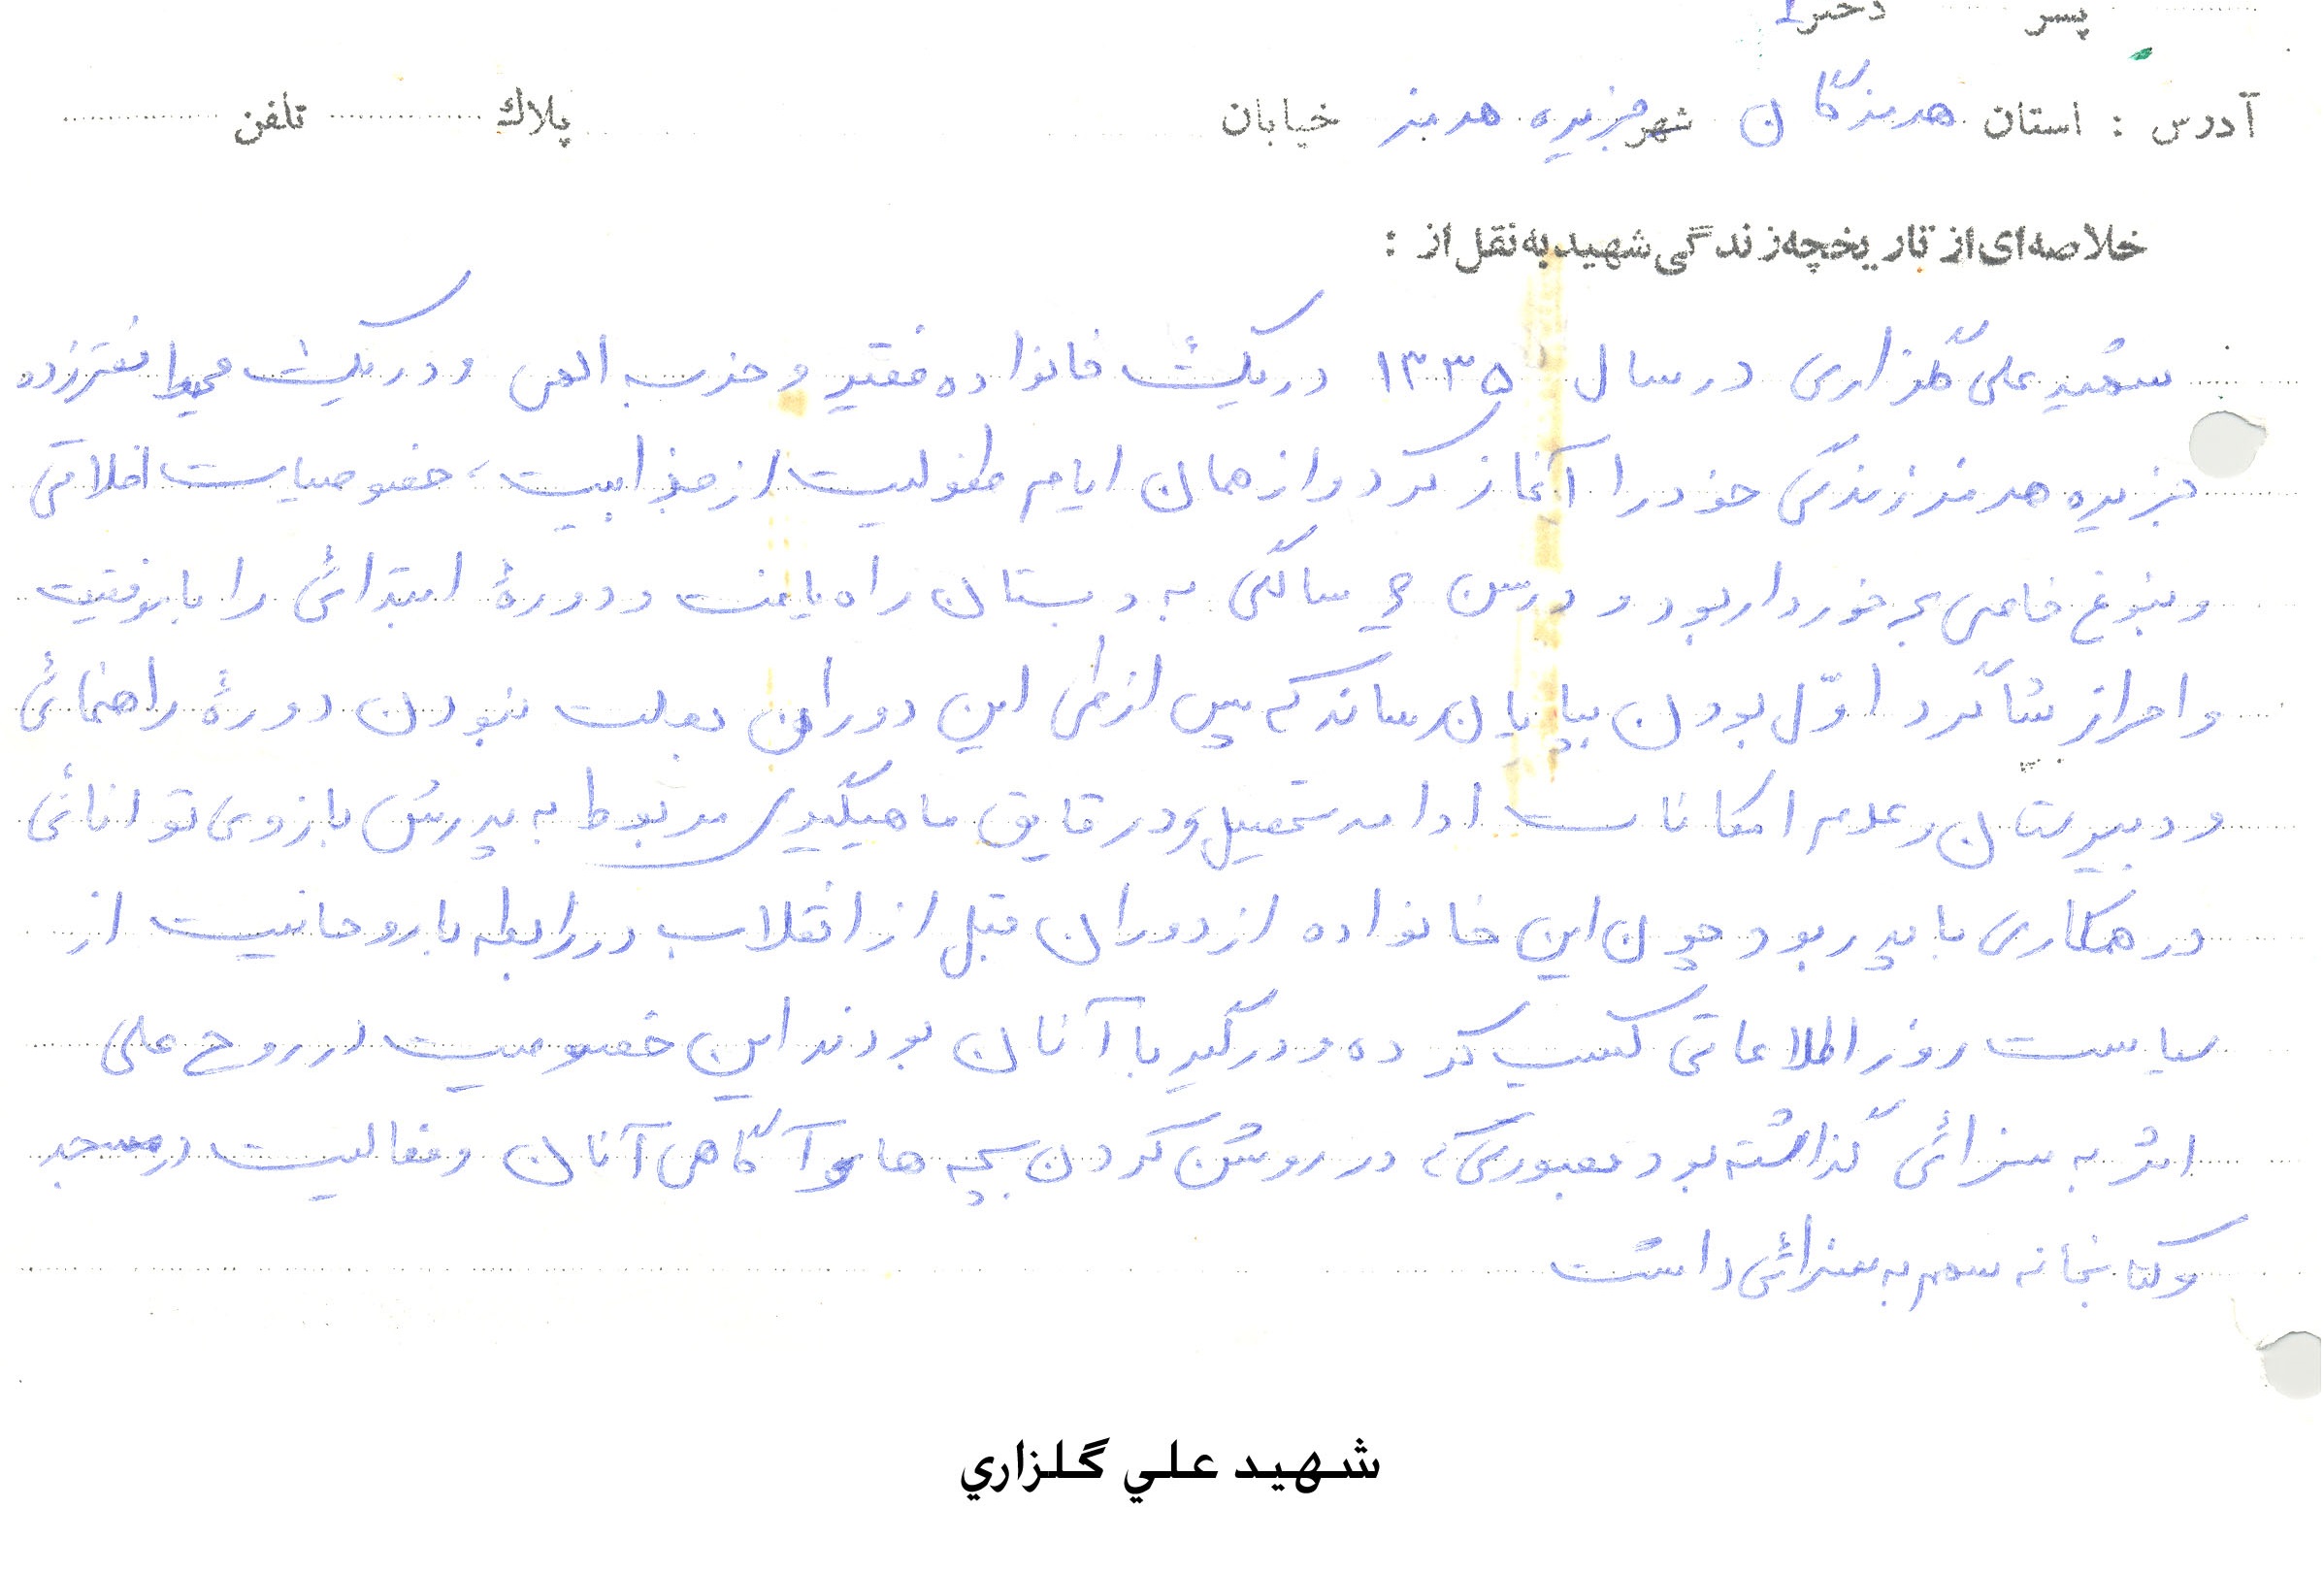 پسر دختر 1
آدرس : استان هرمزگان شهر جزیره هرمز خیابان پلاك تلفن
خلاصه‌ای از تاریخچه زندگی شهید به نقل از :
شهید علی گلزاری در سال ۱۳۳۵ در یک خانواده فقیر و حزب الهی و در یک محیط فقر زده
جزیره هرمز زندگی خود را آغاز کرد و از همان ایام طفولیت از جذابیت، خصوصیات اخلاقی
و نبوغ خاصی برخوردار بود و در سن ۶ سالگی به دبستان راه یافت و دورهٔ ابتدائی را با موفقیت
و احراز شاگرد اوّل بودن بپایان رساند که پس از طی این دوران بعلت نبودن دورهٔ راهنمائی
و دبیرستان و عدم امکانات ادامه تحصیل و در قایق ماهیگیری مربوط به پدرش بازوی توانائی
در همکاری با پدر بود چون این خانواده از دوران قبل از انقلاب در رابطه با روحانیت از
سیاست روز اطلاعاتی کسب کرده و درگیر با آنان بودند این خصوصیت در روح علی
اثر به سزائی گذاشته بود بصوریکه در روشن کردن بچه ها و آگاهی آنان و فعالیت در مسجد
و کتابخانه سهم به سزائی داشت
شهيد علي گلزاري